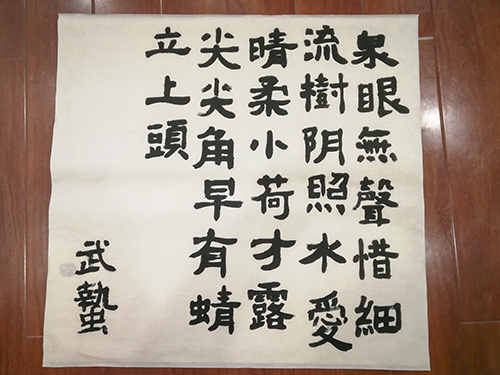 泉眼無聲惜細
流樹阴照水愛
晴柔小荷才露
尖尖角早有蜻
立上頭
武蟄